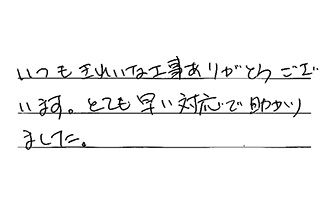 いつもきれいな工事ありがとうござ
います。とても早い対応で助かり
ました。